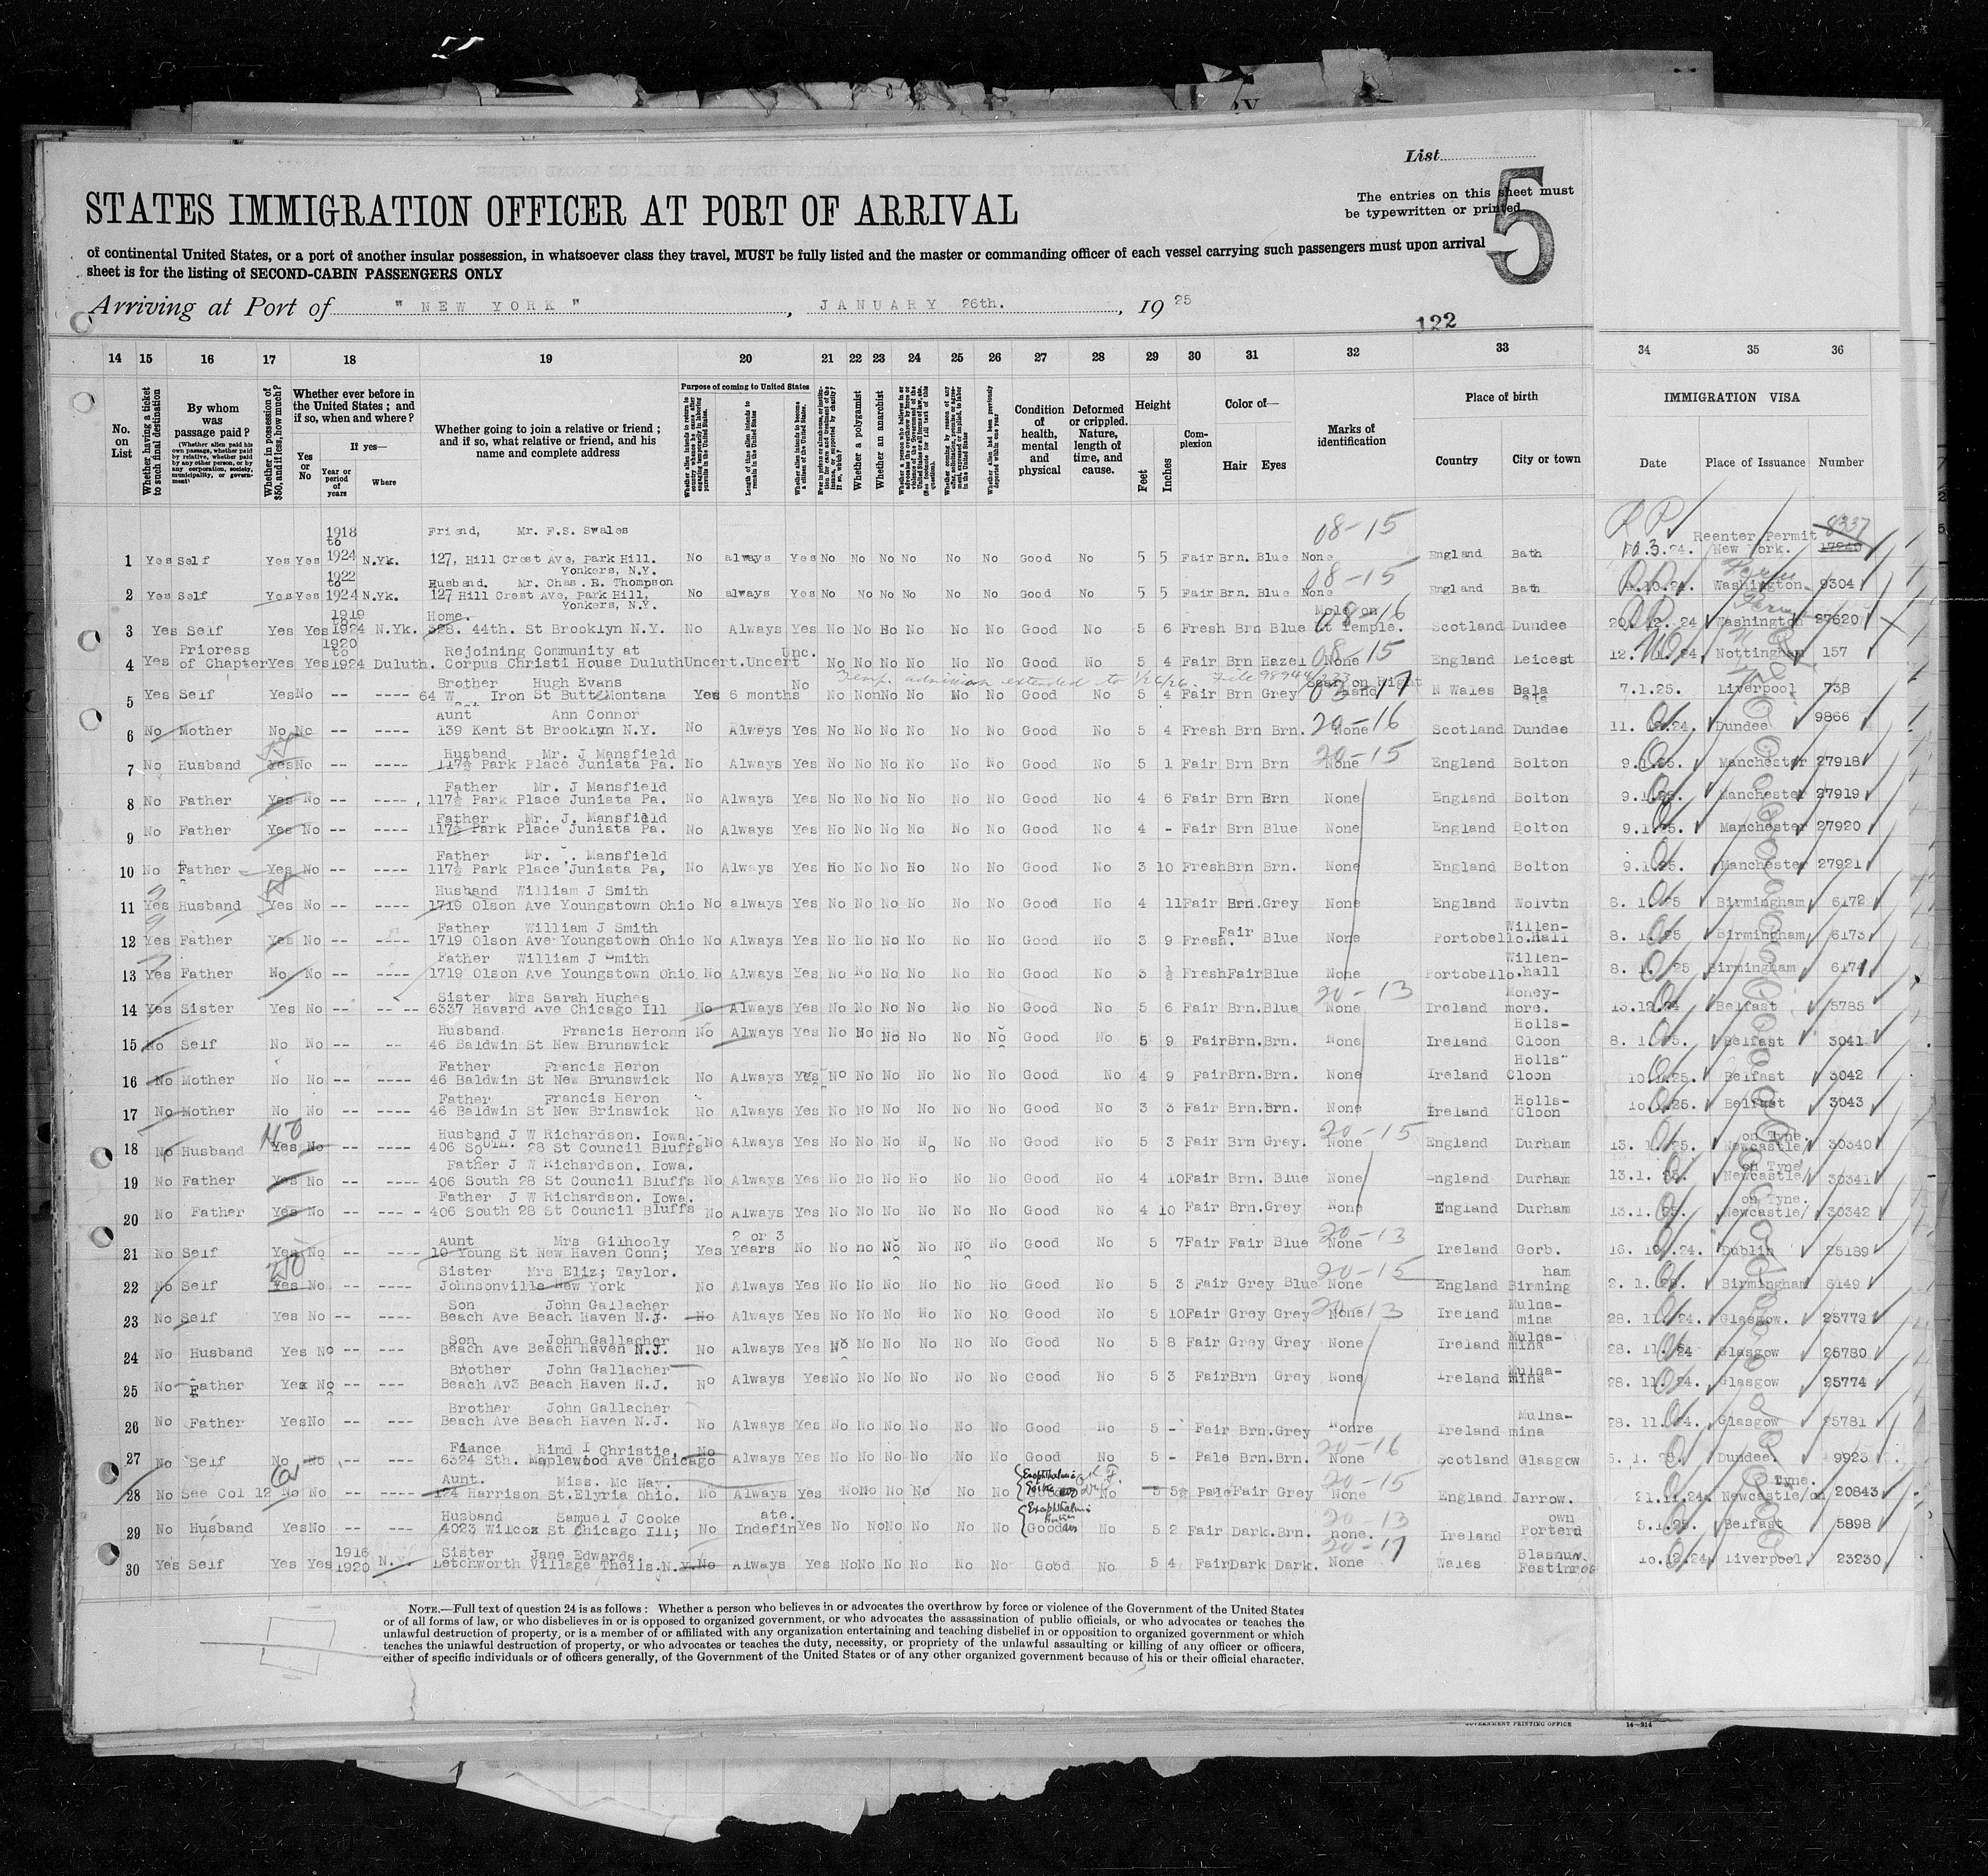 List
The entries on this sheet must
be typewritten or printed.
5
STATES IMMIGRATION OFFICER AT PORT OF ARRIVAL
of continental United States, or a port of another insular possession, in whatsoever class they travel, MUST be fully listed and the master or commanding officer of each vessel carrying such passengers must upon arrival
sheet is for the listing of SECOND-CABIN PASSENGERS ONLY
Arriving at Port of " NEW YORK " , JANUARY 26th. , 19 25
122
14 15 16 17 18 19 20 21 22 23 24 25 26 27 28 29 30 31 32 33 34 35 36
No. on List
Whether having a ticket to such final destination
By whom was passage paid?
Whether in possession of $50, and if less, how much?
Whether ever before in the United States; and if so, when and where?
Yes or No
If yes—
Year or period of years
Where
Whether going to join a relative or friend; and if so, what relative or friend, and his name and complete address
Purpose of coming to United States
Length of time alien intends to remain in the United States
Whether alien intends to become a citizen of the United States.
Whether a polygamist
Whether an anarchist
Condition of health, mental and physical
Deformed or crippled. Nature, length of time, and cause.
Height
Feet Inches
Complexion
Color of—
Hair Eyes
Marks of identification
Place of birth
Country City or town
IMMIGRATION VISA
Date Place of Issuance Number
1918 to Friend, Mr. F.S. Swales 08-15 Reenter Permit 8337
1 Yes Self Yes Yes 1924 N.Yk. 127, Hill Crest Ave, Park Hill. No always Yes No No No No No No Good No 5 5 Fair Brn. Blue None England Bath 10.3.24. New York. 17240
Yonkers, N.Y.
1922 to Husband. Mr. Chas. R. Thompson 08-15
2 Yes Self Yes Yes 1924 N.Yk. 127 Hill Crest Ave, Park Hill, No always Yes No No No No No No Good No 5 5 Fair Brn. Blue None England Bath Washington 9304
Yonkers, N.Y.
1919 to Home. Mole on 08-16
3 Yes Self Yes Yes 1924 N.Yk. 328. 44th. St Brooklyn N.Y. No Always Yes No No No No No No Good No 5 6 Fresh Brn Blue Lt Temple. Scotland Dundee 20.12.24 Washington 87620
Prioress 1920 to Rejoining Community at Unc. 08-15
4 Yes of Chapter Yes Yes 1924 Duluth. Corpus Christi House Duluth Uncert. Uncert No No No No No No Good No 5 4 Fair Brn Hazel None England Leicest Nottingham 157
Brother Hugh Evans No Temp. admission extended to 1/26/26. Scar on Right 03-17
5 Yes Self Yes No -- ---- 64 W Iron St Butte Montana Yes 6 months No No No No No No Good No 5 4 Fair Brn Grey Hand N Wales Bala 7.1.25. Liverpool 738
Aunt Ann Connor 20-16
6 No Mother No No -- ---- 139 Kent St Brooklyn N.Y. No Always Yes No No No No No No Good No 5 4 Fresh Brn Brn. None Scotland Dundee Dundee 9866
Husband Mr. J Mansfield 20-15
7 No Husband Yes No -- ---- 117½ Park Place Juniata Pa. No Always Yes No No No No No No Good No 5 1 Fair Brn Brn None England Bolton 9.1.25. Manchester 27918
Father Mr. J Mansfield
8 No Father Yes No -- ---- 117½ Park Place Juniata Pa. No Always Yes No No No No No No Good No 4 6 Fair Brn Brn None England Bolton 9.1.25. Manchester 27919
Father Mr. J. Mansfield
9 No Father Yes No -- ---- 117½ Park Place Juniata Pa. No Always Yes No No No No No No Good No 4 - Fair Brn Blue None England Bolton 9.1.25. Manchester 27920
Father Mr. Mansfield
10 No Father Yes No -- ---- 117½ Park Place Juniata Pa, No Always Yes No No No No No No Good No 3 10 Fresh Brn Brn. None England Bolton 9.1.25. Manchester 27921
Husband William J Smith
11 Yes Husband Yes No -- ---- 1719 Olson Ave Youngstown Ohio No always Yes No No No No No No Good No 4 11 Fair Brn. Grey None England Wolvtn 8.1.25 Birmingham 6172
Father William J Smith Willen-
12 Yes Father Yes No -- ---- 1719 Olson Ave Youngstown Ohio No Always Yes No No No No No No Good No 3 9 Fresh. Fair Blue None Portobello. hall 8.1.25 Birmingham 6173
Father William J Smith Willen-
13 Yes Father No No -- ---- 1719 Olson Ave Youngstown Ohio No Always Yes No No No No No No Good No 3 ½ Fresh Fair Blue None Portobello. hall 8.1.25 Birmingham 6174
Sister Mrs Sarah Hughes 20-13 Money-
14 Yes Sister Yes No -- ---- 6337 Havard Ave Chicago Ill No Always Yes No No No No No No Good No 5 6 Fair Brn. Blue None Ireland more. Belfast 5785
Husband Francis Heronn Holls-
15 No Self No No -- -- 46 Baldwin St New Brunswick No Always Yes No No No No No No Good No 5 9 Fair Brn. Brn. None Ireland Cloon 8.1.25. Belfast 3041
Father Francis Heron Holls-
16 No Mother No No -- ---- 46 Baldwin St New Brunswick No Always Yes No No No No No No Good No 4 9 Fair Brn. Brn. None Ireland Cloon 10.1.25. Belfast 3042
Father Francis Heron Holls-
17 No Mother No No -- ---- 46 Baldwin St New Brinswick No Always Yes No No No No No No Good No 3 3 Fair Brn. Brn. None Ireland Cloon 10.1.25. Belfast 3043
Husband J W Richardson. Iowa. 20-15 on Tyne.
18 No Husband Yes No -- ---- 406 South. 28 St Council Bluffs No Always Yes No No No No No No Good No 5 3 Fair Brn Grey. None England Durham 13.1.25. Newcastle/ 30340
Father J W Richardson. Iowa. on Tyne
19 No Father Yes No -- ---- 406 South 28 St Council Bluffs No Always Yes No No No No No No Good No 4 10 Fair Brn. Blue None England Durham 13.1.25. Newcastle/ 30341
Father J W Richardson. Iowa. on Tyne.
20 No Father Yes No -- ---- 406 South 28 St Council Bluffs No Always Yes No No No No No No Good No 4 10 Fair Brn. Grey None England Durham 13.1.25. Newcastle/ 30342
Aunt Mrs Gilhooly 2 or 3 20-13
21 No Self Yes No -- ---- 10 Young St New Haven Conn; Yes Years No No no No No No No Good No 5 7 Fair Fair Blue None Ireland Gorb. Dublin 25189
Sister Mrs Eliz; Taylor. 20-15 ham
22 No Self Yes No -- ---- Johnsonville New York No Always Yes No No No No No No Good No 5 3 Fair Grey Blue None England Birming 2.1.25. Birmingham 6149
Son John Gallacher 20-13 Mulna-
23 No Self Yes No -- ---- Beach Ave Beach Haven N.J. No Always Yes No No No No No No Good No 5 10 Fair Grey Grey None Ireland mina 28.11.24. Glasgow. 25779
Son John Gallacher Mulna-
24 No Husband Yes No -- --- Beach Ave Beach Haven N.J. No Always Yes No No No No No No Good No 5 8 Fair Grey Grey None Ireland mina 28.11.24 Glasgow 25780
Brother John Gallacher Mulna-
25 No Father Yes No -- --- Beach Av3 Beach Haven N.J. No Always Yes No No No No No No Good No 5 3 Fair Brn Grey None Ireland mina 28.11.24. Glasgow 25774
Brother John Gallacher Mulna-
26 No Father Yes No -- ---- Beach Ave Beach Haven N.J. No Always Yes No No No No No No Good No 5 - Fair Brn. Grey Nonre Ireland mina 28.11.24. Glasgow 25781
Fiance Himd I Christie. 20-16
27 No Self No No -- ---- 6324 Sth. Maplewood Ave Chicago No Always Yes No No No No No No Good No 5 - Pale Brn. Brn. None Scotland Glasgow Dundee. 9923
Aunt. Miss. Mc Nay. 20-15 Tyne.
28 No See Col 12 No No -- ---- 124 Harrison St. Elyria Ohio. No Always Yes No No No No No No Good No 5 5½ Pale Fair Grey None England Jarrow. 21.11.24. Newcastle/on 20843
Husband Samuel J Cooke ate. 20-13 own
29 No Husband Yes No -- ---- 4023 Wilcox St Chicago Ill; No Indefin Yes No No No No No No Good No 5 2 Fair Dark. Brn. none. Ireland Porterd 5.1.25. Belfast 5898
Sister Jane Edwards. 20-17
30 Yes Self Yes Yes 1916 1920 N.Y. Letchworth Village Theils. N.Y. No Always Yes No No No No No No Good No 5 4 Fair Dark Dark. None Wales Festinrog 10.12.24 Liverpool. 23230
NOTE.—Full text of question 24 is as follows: Whether a person who believes in or advocates the overthrow by force or violence of the Government of the United States
or of all forms of law, or who disbelieves in or is opposed to organized government, or who advocates the assassination of public officials, or who advocates or teaches the
unlawful destruction of property, or is a member of or affiliated with any organization entertaining and teaching disbelief in or opposition to organized government or which
teaches the unlawful destruction of property, or who advocates or teaches the duty, necessity, or propriety of the unlawful assaulting or killing of any officer or officers,
either of specific individuals or of officers generally, of the Government of the United States or of any other organized government because of his or their official character.
GOVERNMENT PRINTING OFFICE 14—314